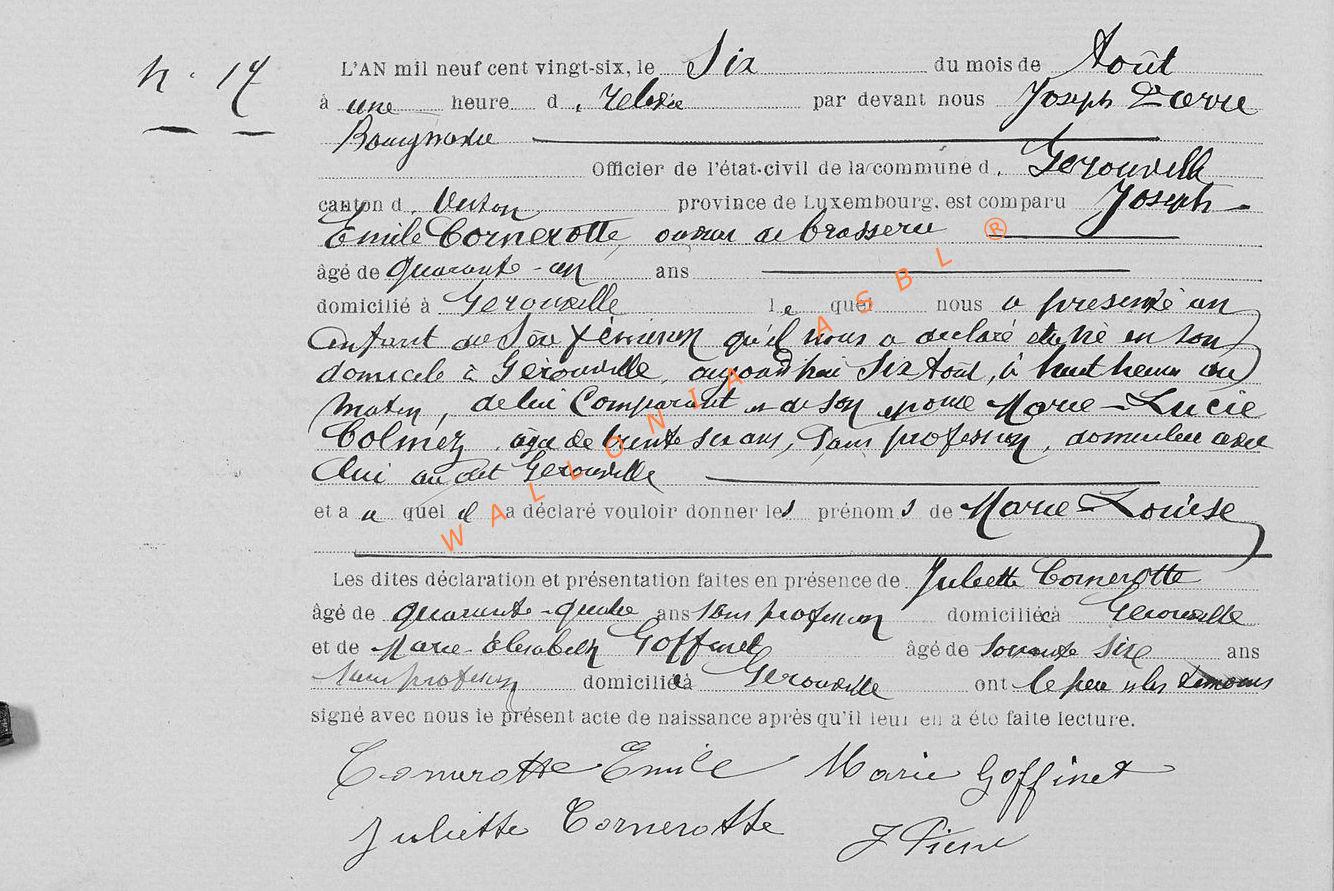 N. 17
L'AN mil neuf cent vingt-six, le Six du mois de Août
à une heure d. relevée par devant nous Joseph Pierre
Bourgmestre
Officier de l'état-civil de la commune d. Gerouville
canton d. Virton province de Luxembourg, est comparu Joseph-
Emile Cornerotte, ouvrier de brasserie
âgé de quarante-un ans
domicilié à Gerouville lequel nous a présenté un
enfant de Sexe féminin qu'il nous a déclaré être né en son
domicile à Gérouville, aujourd'hui Six Août, à huit heures du
matin, de lui Comparant et de son épouse Marie-Lucie
Colmez, âgée de trente six ans, Sans profession, domiciliée avec
lui au dit Gerouville
et a u quel il a déclaré vouloir donner les prénoms de Marie-Louise
Les dites déclaration et présentation faites en présence de Juliette Cornerotte
âgé de quarante-quatre ans sans profession domiciliée à Gerouville
et de Marie-Elisabeth Goffinet âgé de soixante six ans
Sans profession domiciliée à Gerouville ont le père et les témoins
signé avec nous le présent acte de naissance après qu'il leur en a été faite lecture.
Cornerotte Emile Marie Goffinet
Juliette Cornerotte J Pierre
WALLONIA ASBL ®